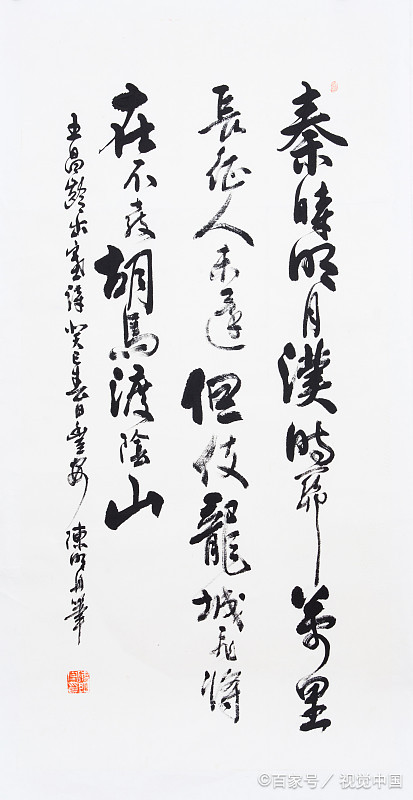 秦時明月漢時關萬里
長征人未還但使龍城飛將
在不教胡馬渡陰山
王昌齡出塞詩癸巳春日 陳明 筆
©百家号／视觉中国